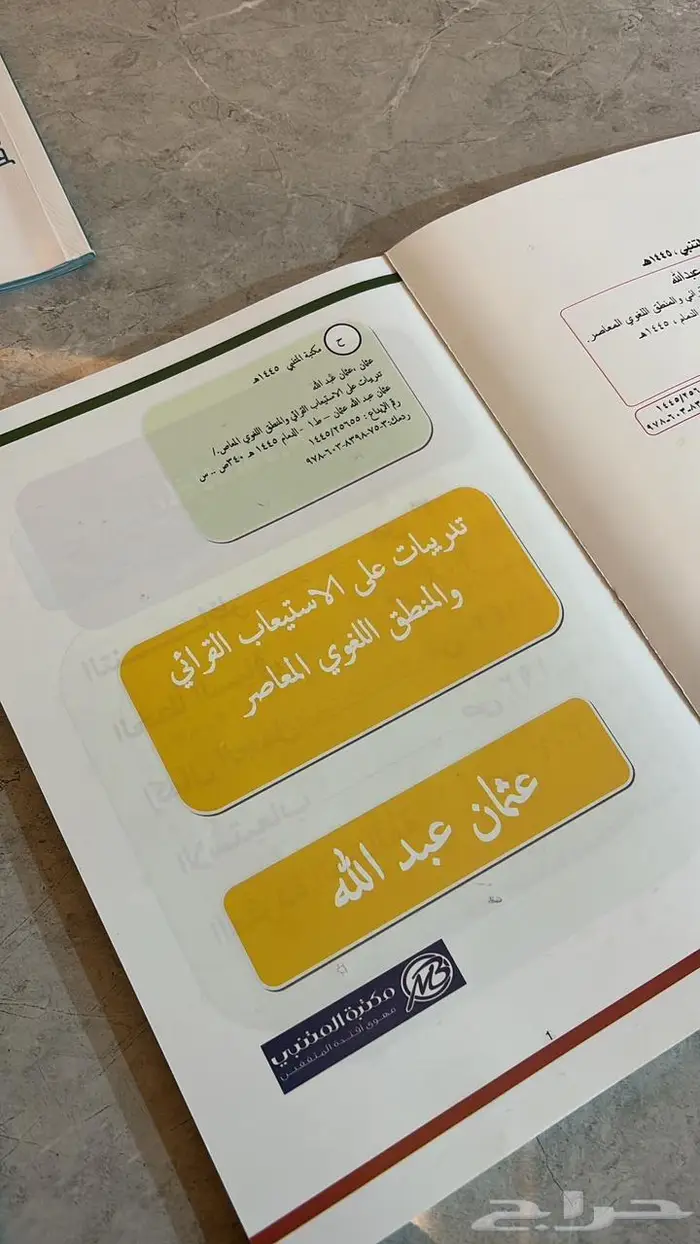 ح
مكتبة المتنبي ١٤٤٥هـ
عثمان ،عثمان عبد الله
تدريبات على الاستيعاب القرائي والمنطق اللغوي المعاصر./
عثمان عبد الله عثمان – ط١ - الدمام ١٤٤٥ هـ ٣٤٠ص .. س
رقم الإيداع : ١٤٤٥/٢٥٦٥٥
ردمك:٣-٧٥-٨٣٩٨-٦٠٣-٩٧٨
تدريبات على الاستيعاب القرائي
والمنطق اللغوي المعاصر
عثمان عبد الله
MB
مكتبة المتنبي
مهوى أفئدة المثقفين
1
المتنبي ، ١٤٤٥هـ
عبدالله
والمنطق اللغوي المعاصر.
الدمام ، ١٤٤٥هـ
حراج